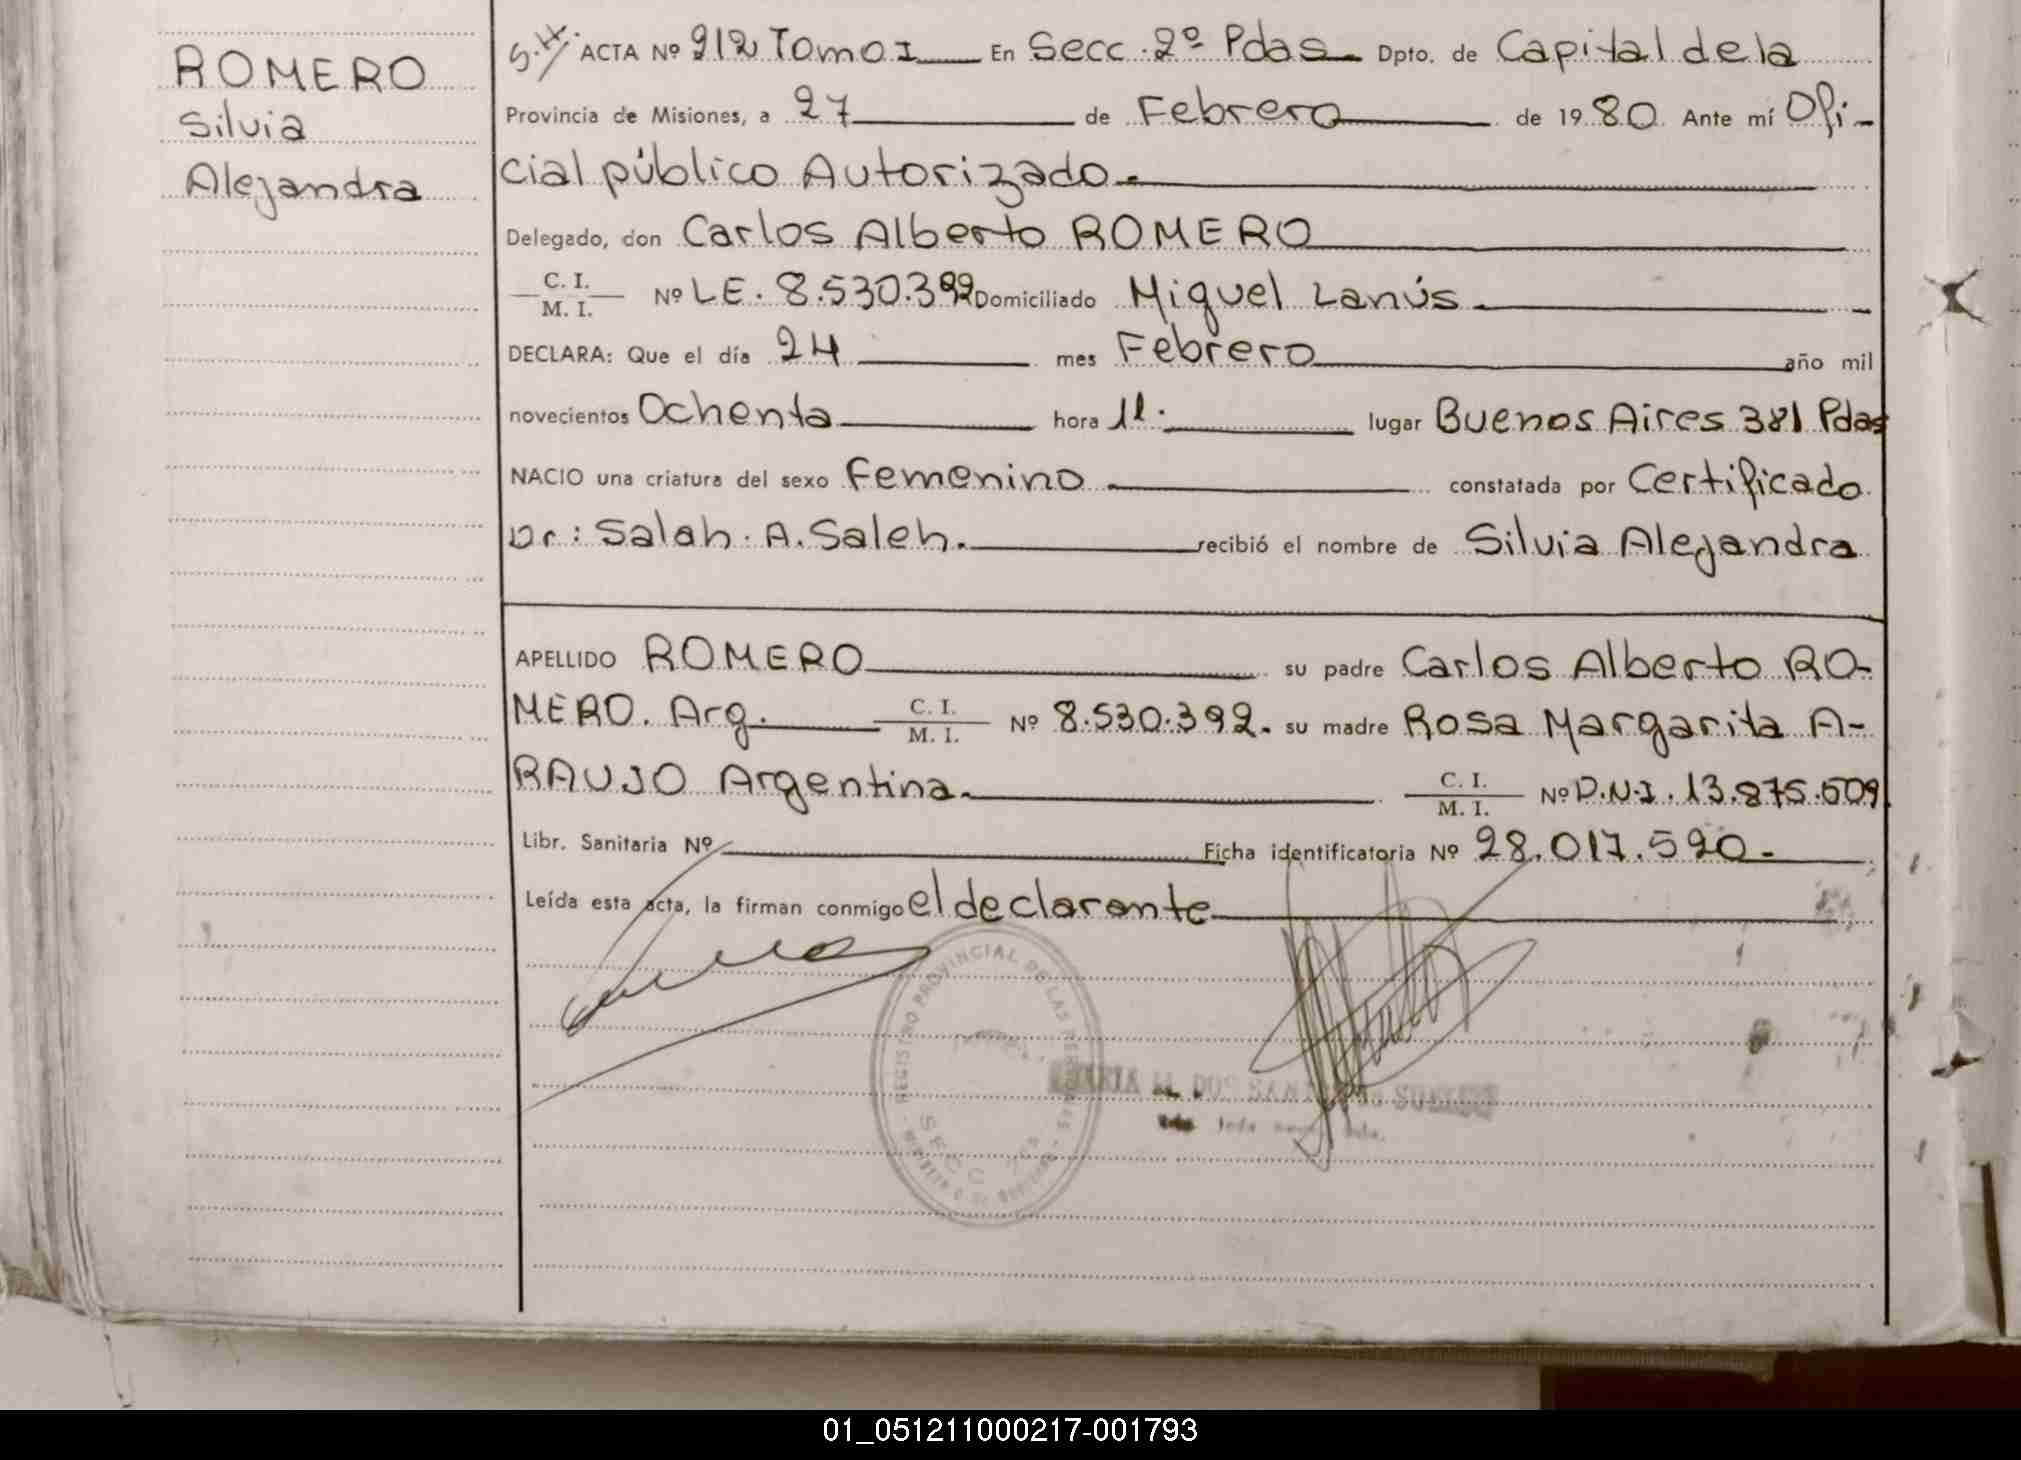 ROMERO
Silvia
Alejandra
S.H. ACTA Nº 912 Tomo I En Secc. 2º Pdas Dpto. de Capital de la
Provincia de Misiones, a 27 de Febrero de 1980 Ante mí Ofi-
cial público Autorizado.
Delegado, don Carlos Alberto ROMERO
C. I.
M. I. Nº LE. 8.530.392 Domiciliado Miguel Lanús
DECLARA: Que el día 24 mes Febrero año mil
novecientos Ochenta hora 11. lugar Buenos Aires 381 Pdas
NACIO una criatura del sexo Femenino constatada por Certificado
Dr: Salah. A. Saleh. recibió el nombre de Silvia Alejandra
APELLIDO ROMERO su padre Carlos Alberto RO-
MERO. Arg. C. I. M. I. Nº 8.530.392. su madre Rosa Margarita A-
RAUJO Argentina. C. I. M. I. Nº D.N.I. 13.875.509
Libr. Sanitaria Nº Ficha identificatoria Nº 28.017.520.
Leída esta acta, la firman conmigo el declarante
REGISTRO PROVINCIAL DE LAS PERSONAS
SECC
01_051211000217-001793